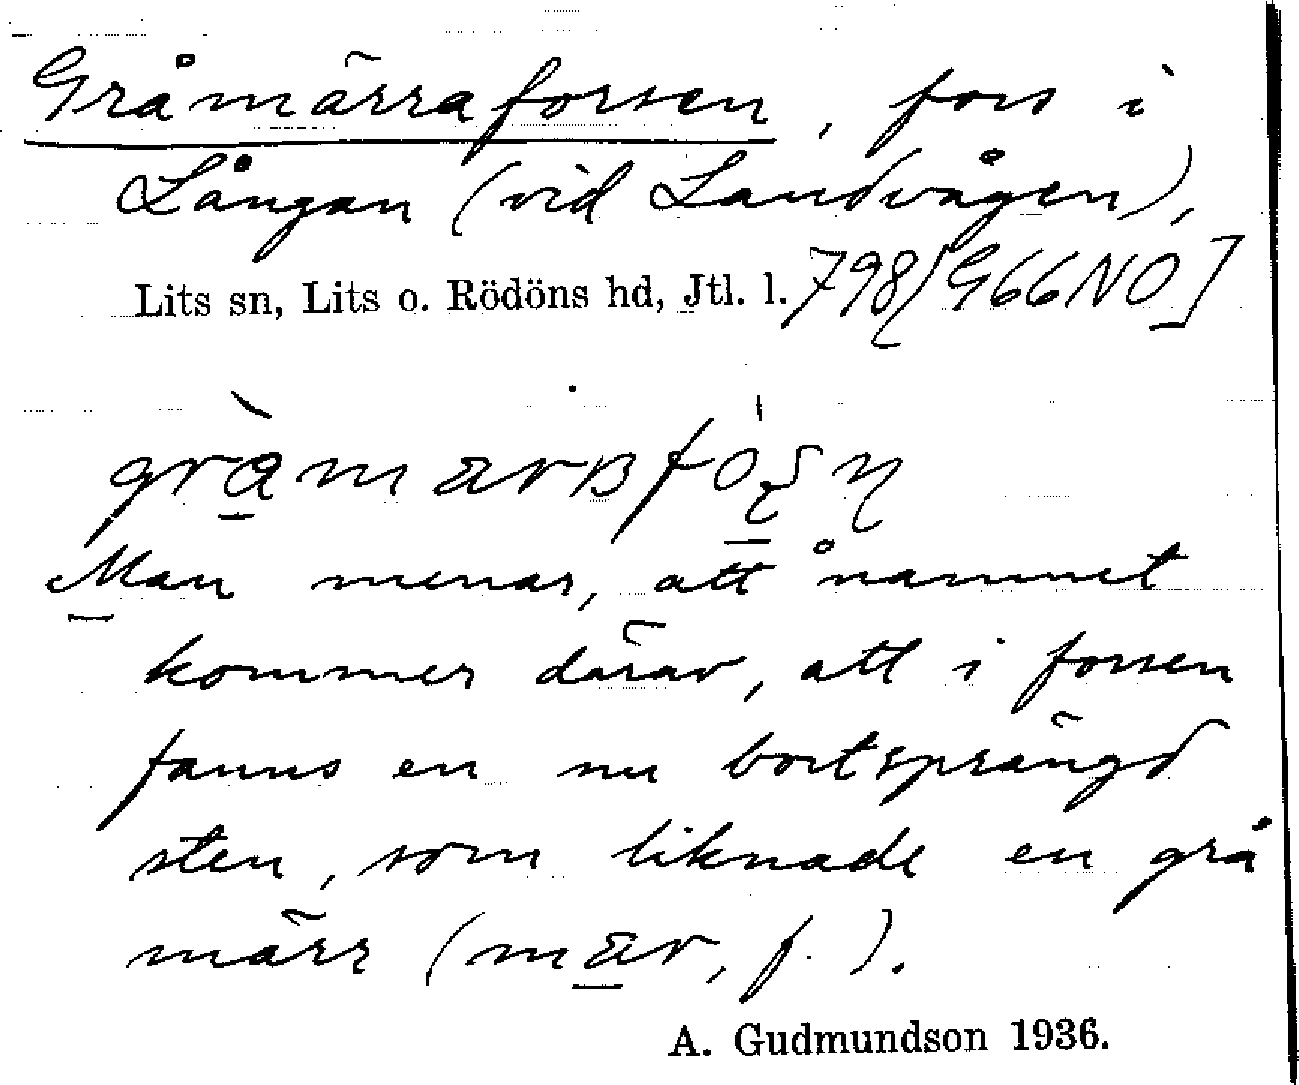 Gråmärraforsen, fors i
Långan (vid Landvågen),
Lits sn, Lits o. Rödöns hd, Jtl. l. 798[G66NO]
Man menar, att namnet
kommer därav, att i forsen
fanns en nu bortsprängd
sten, som liknade en grå
märr (mær, f.).
A. Gudmundson 1936.